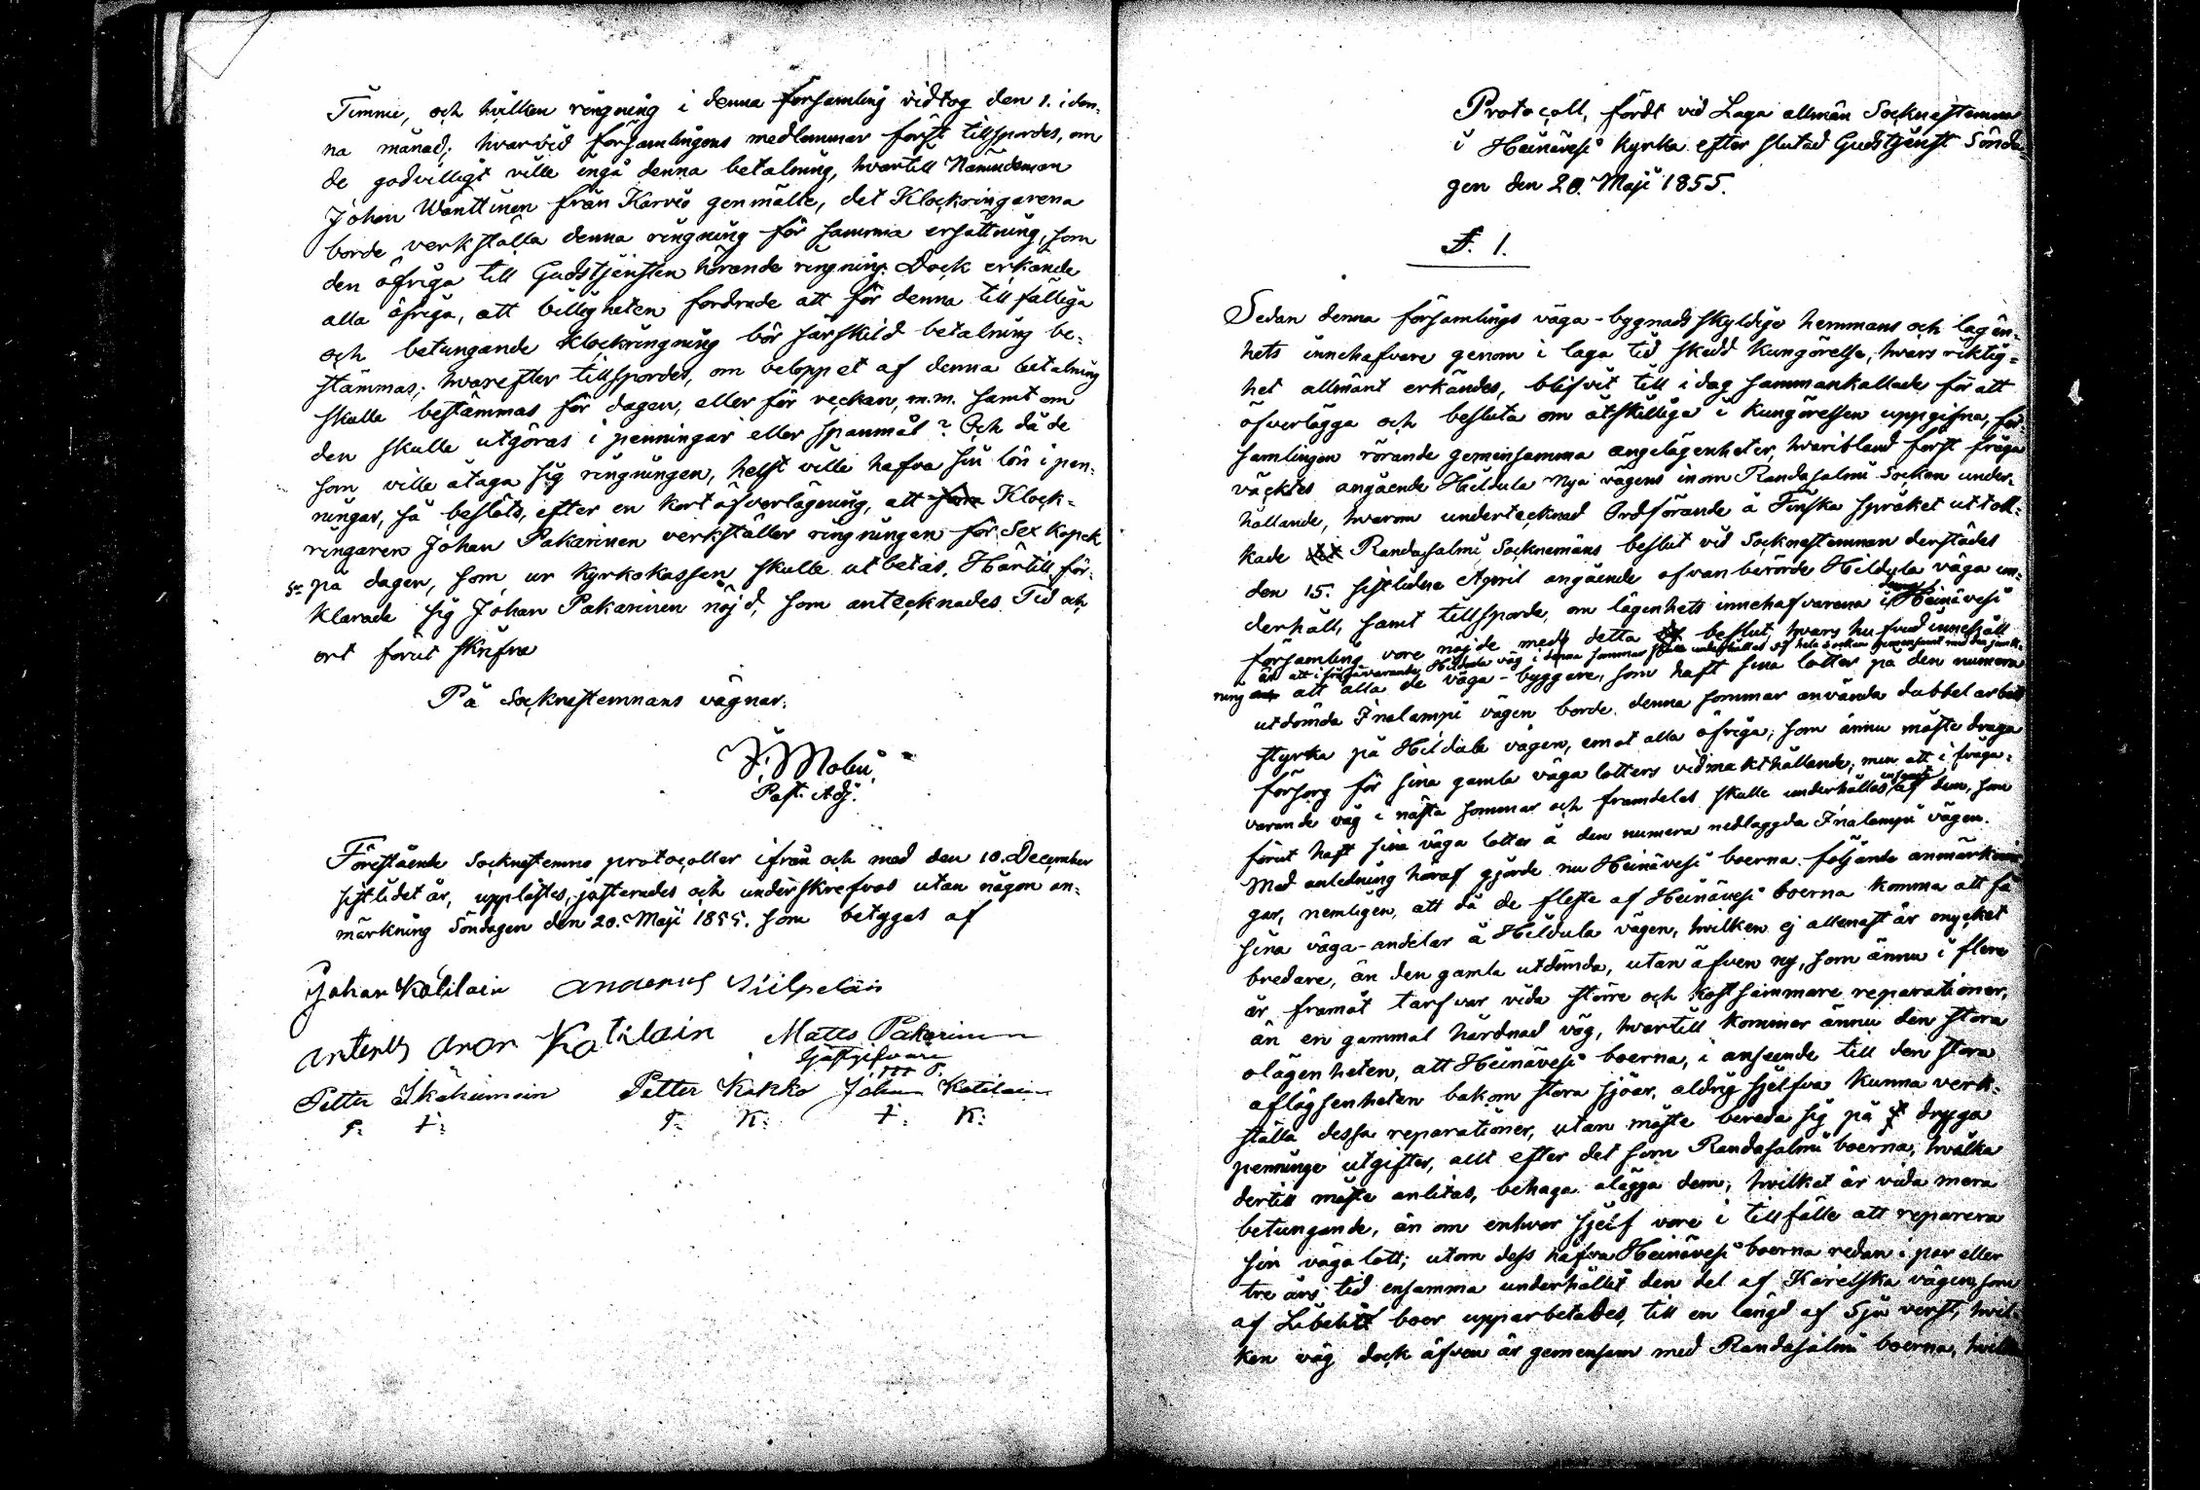 Timme, och hvilken ringning i denna församling vidtog den 1. i den-
na månad; hvarvid församlingens medlemmar först tillspordes, om
de godvilligt ville ingå denna betalning, hvartill Nämndeman
Johan Wänttinen från Karvio genmälte, det Klockringarena
borde verkställa denna ringning för samma ersättning, som
den öfriga till Gudstjensten hörande ringning. Dock erkände
alla öfriga, att billigheten fordrade att för denna tillfälliga
och betungande klockringning bör särskild betalning be-
stämmas; hvarefter tillspordes, om beloppet af denna betalning
skulle bestämmas för dagen, eller för veckan, m.m. samt om
den skulle utgöras i penningar eller spanmål? Och då de
som ville åtaga sig ringningen, helst ville hafva sin lön i pen-
ningar, så beslöts, efter en kort öfverlägning, att Klock-
ringaren Johan Pakarinen verkställer ringningen för Sex Kopek
Sr på dagen, som ur Kyrkokassen skulle utbetas. Härtill för-
klarade sig Johan Pakarinen nöjd, som antecknades. Tid och
ort förut skrifne
På Socknestemnans vägnar:
Molin,
Past. Adj.
Förestående Socknestemno protocoller ifrån och med den 10. December
sistlidet år, upplästes, justerades och underskrefvos utan någon an-
märkning Söndagen den 20. Maji 1855. som betygas af
Johan Kotilain Anderus Siilpeläin
Anders Aron Kotilain Matts Pakarinen
Gästgifvare
Petter Ikäheimoin Petter Kakko Johan Kotilain
P. I: P. K: I: K:
Protocoll, fördt vid Laga allmän Socknestemna
i Heinävesi Kyrka efter slutad Gudstjenst Sönda-
gen den 20. Maji 1855.
§. 1.
Sedan denna församlings väga-bygnadsskyldige hemmans och lägen-
hets innehafvare genom i laga tid skedd kungörelse, hvars riktig-
het allmänt erkändes, blifvit till i dag sammankallade för att
öfverlägga och besluta om åtskilliga i kungörelsen uppgifna, för-
samlingen rörande gemensamma angelägenheter, hvaribland först fråga
väcktes angående Hildula nya vägens inom Randasalmi Socken under-
hållande, hvarom undertecknad Ordförande å Finska språket uttol-
kade Randasalmi Socknemäns beslut vid Socknestemnan derstädes
den 15. sistlidne April angående ofvanberörde Hildula väga un-
derhåll, samt tillsporde, om lägenhets innehafvarena i denna Heinävesi
församling vore nöjde med detta beslut, hvars hufvud innehåll
är att ifrågavarande Hildula väg i denna sommar skulle underhållas af hela Socken gemensamt med den
ning att alla de väga-byggare, som haft sina lotter på den numera
utdömda Inalampi vägen, borde denna sommar använda dubbel arbets
styrka på Hildula vägen, emot alla öfriga, som ännu måste draga
försorg för sina gamla väga lotters vidmakthållande; men att i fråga-
varande väg i nästa sommar och framdeles skulle underhållas af dem, som
förut haft sina väga lotter å den numera nedlaggda Inalampi vägen.
Med anledning häraf gjorde nu Heinävesi boerna följande anmärknin
gar, nemligen, att då de fleste af Heinävesi boerna komma att få
sina väga-andelar å Hildula vägen, hvilken ej allenast är mycket
bredare, än den gamla utdömda, utan äfven ny, som ännu i flere
år framåt tarfvar vida större och kostsammare reparationer,
än en gammal hårdnad väg, hvartill kommer ännu den stora
olägenheten, att Heinävesi boerna, i anseende till den stora
aflägsenheten bakom stora sjöar, aldrig sjelfva kunna verk-
ställa dessa reparationer, utan måste bereda sig på dryga
penninge utgifter, allt efter det som Randasalmi boerna, hvilka
dertill måste anlitas, behaga ålägga dem, hvilket är vida mera
betungande, än om enhvar sjelf vore i tillfälle att reparera
sin väga lott; utom dess hafva Heinävesi boerna redan i par eller
tre års tid ensamma underhållit den del af Karelska vägen, som
af Libelits boer upparbetades, till en längd af Sju verst, hvil-
ken väg dock äfven är gemensam med Randasalmi boerna,